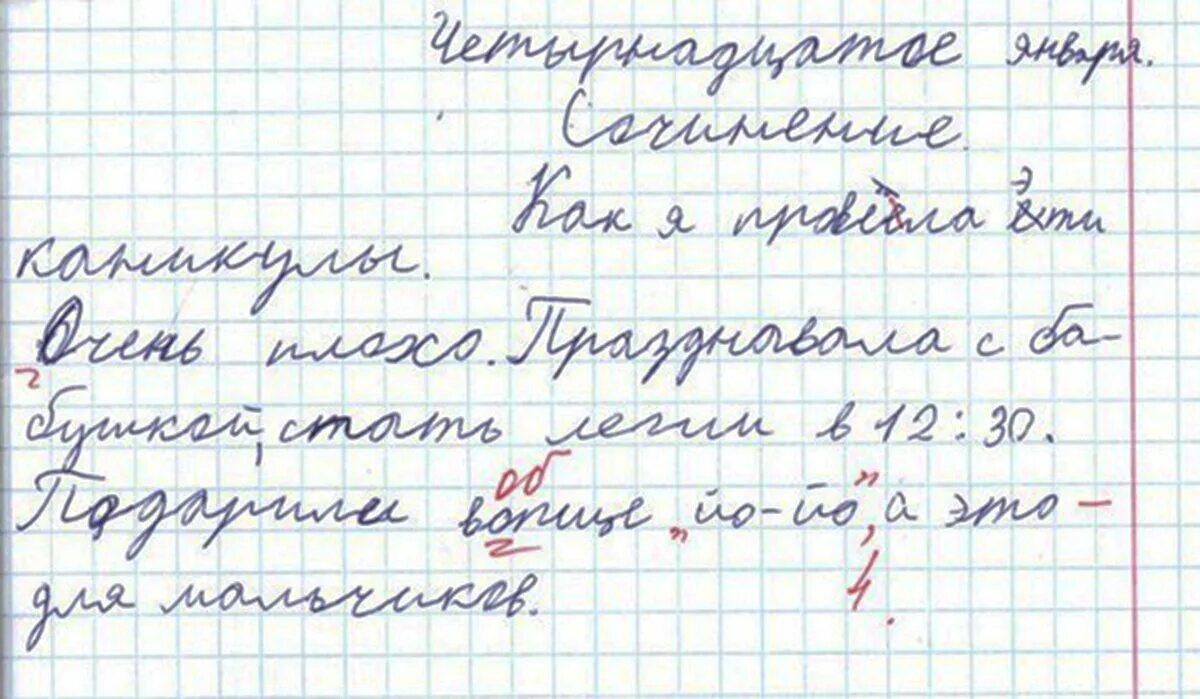 Четырнадцатое января.
Сочинение.
Как я провела эти
каникулы.
Очень плохо. Праздновала с ба-
бушкой, спать легли в 12:30.
Подарили вопще "йо-йо", а это -
для мальчиков.
об
4.